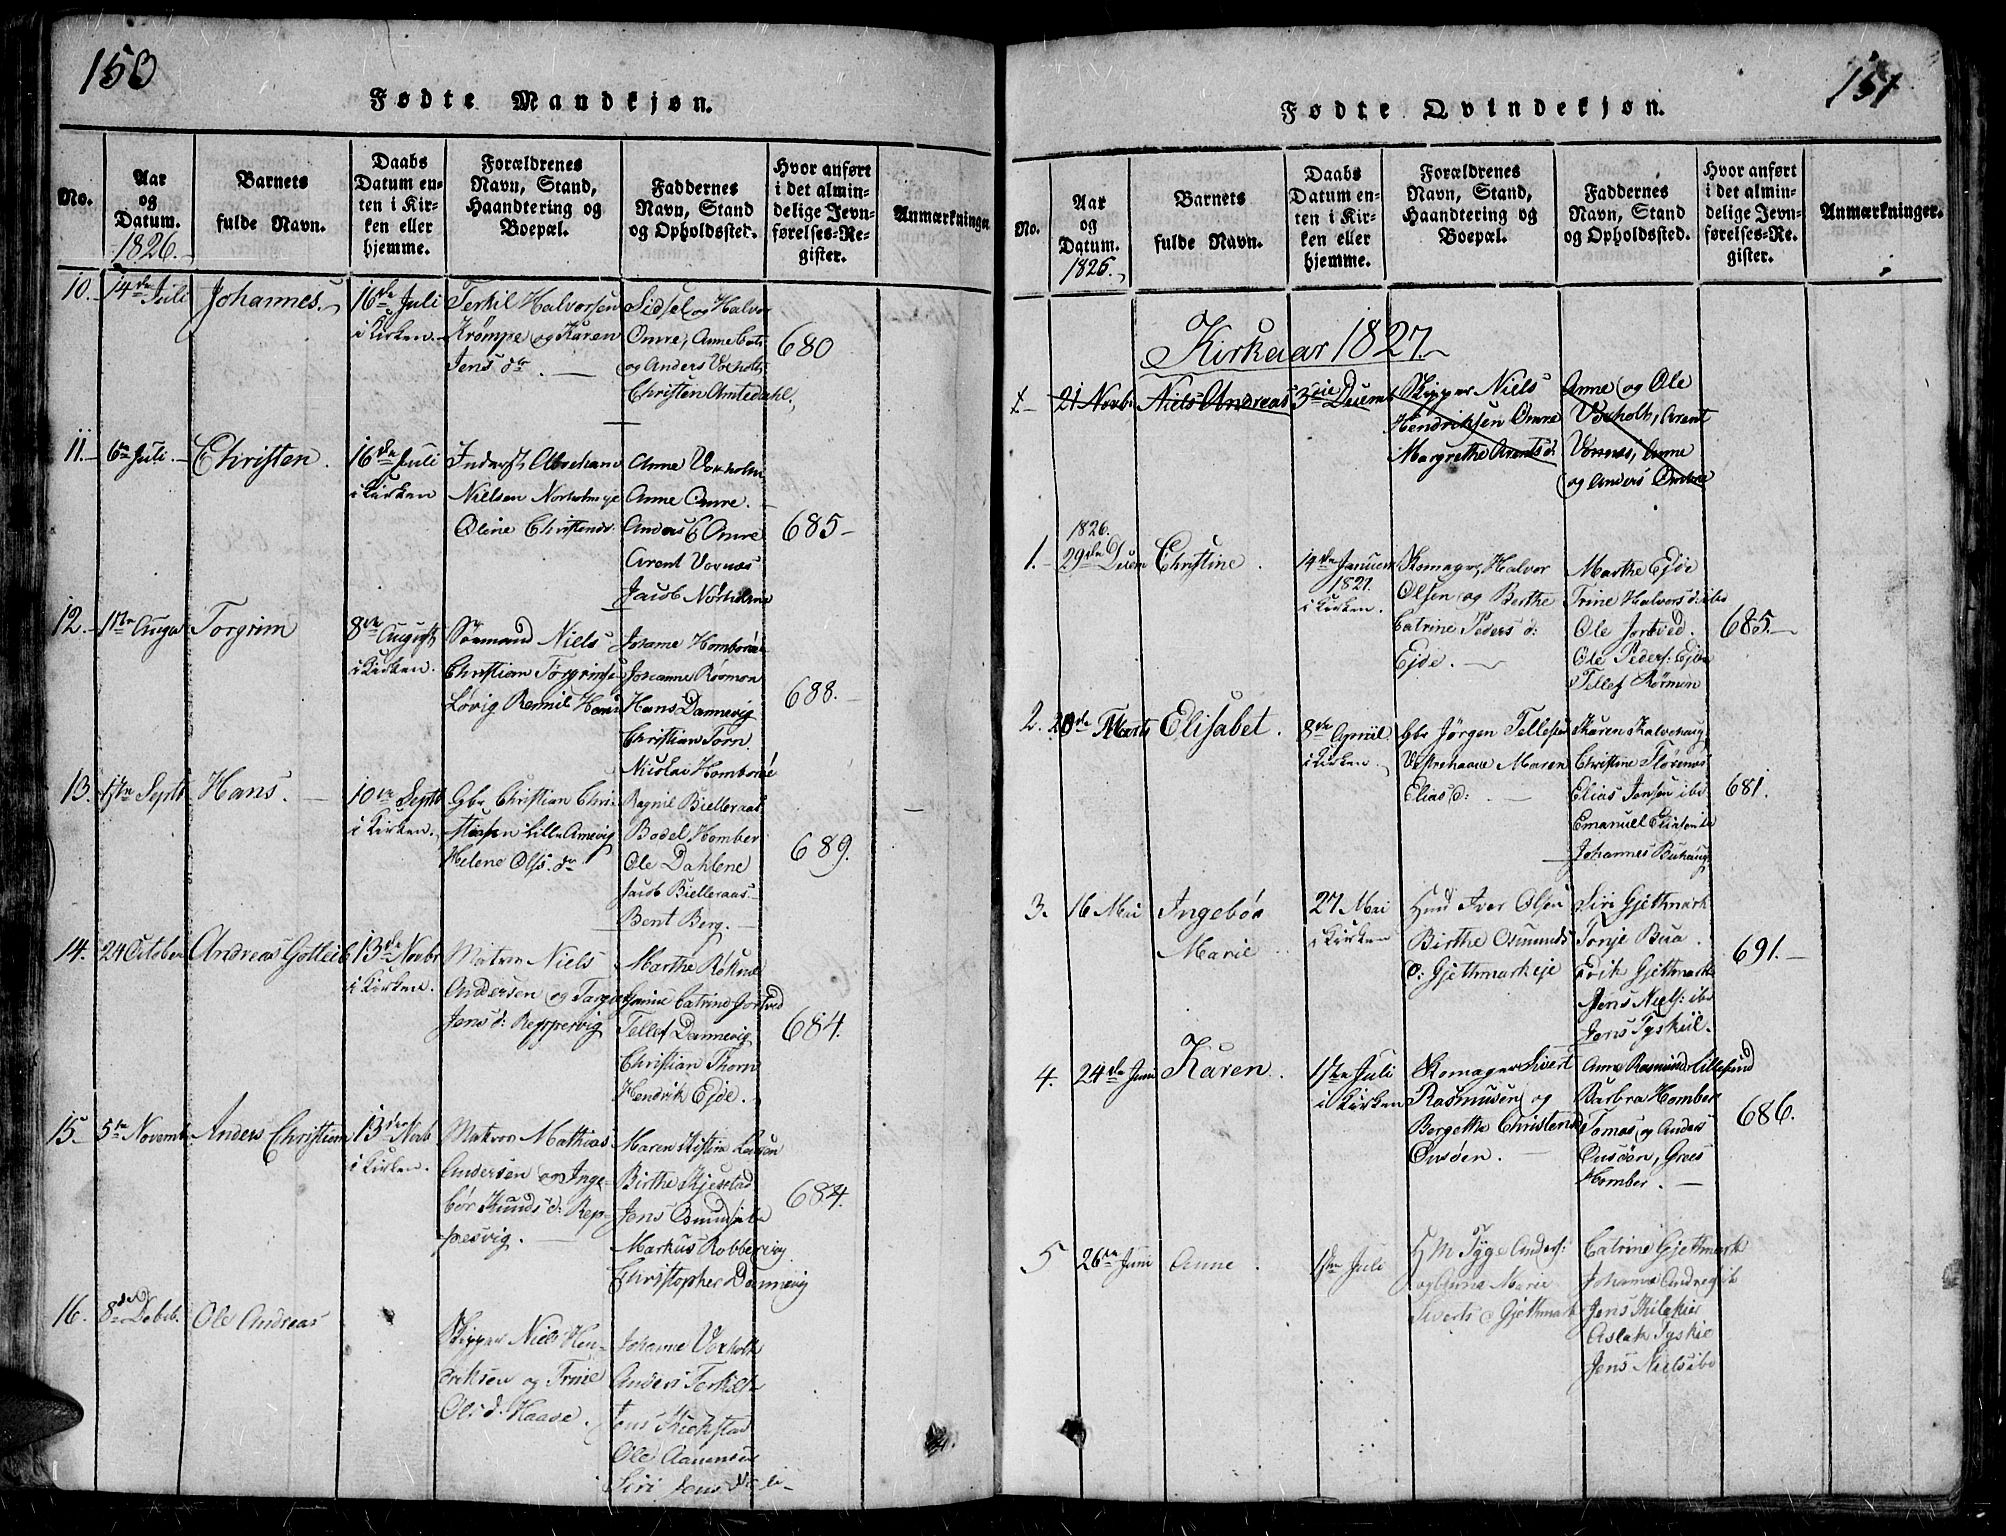 150
Fødte Mandkjøn.
No.
Aar og Datum.
1826.
Barnets fulde Navn.
Daabs Datum enten i Kirken eller hjemme.
Forældrenes Navn, Stand, Haandtering og Boepæl.
Faddernes Navn, Stand og Opholdssted.
Hvor anført i det almindelige Jevnførelses-Register.
Anmærkninger.
10.
14de Juli
Johannes.
16de Juli
i Kirken.
Terkil Halvorsen
Krømpe og Karen
Jens dr
Sidsel og Halvor
Omre, Anne
og Anders Voxholt
Christen Amtedahl.
680
11.
6te Juli.
Christen.
16de Juli
i Kirken
Inderst Abraham
Nielsen Norholm eje
Oline Christensdr.
Anne Voxholm
Anne Omre.
Anders Omre
Arent Vornæs
Jacob Norholmie
685
12.
Torgrim
8de August
i Kirken.
Sørmand Niels
Christian Torgrims
Løvig
Johanne Homborøe
Johanne Rørmon
Hans Dannevig
Christian Torn
Nicolai Homborøe
688.
13.
Septb
Hans.
10de Septb
i Kirken.
Gbr Christian Chri-
stiasen Lille Amevig
Helene Ols. dr
Ragnil Bielleraas
Bodel Homber
Ole Dahlene
Jacob Bielleraas
Bent Berg.
689.
14.
24 October
Andreas Gotleib
13de Novbr
i Kirken.
Matros Niels
Andersen og
Jens d: Reppesvig
Marthe
Catrine Jortved
Tellef Dannevig
Christian Thorn
Hendrik Ejde.
684.
15.
5te Novemb
Anders Christian
13de Novb
i Kirken.
Matros Mathias
Andersen og Inge-
bor Knuds d: Rep-
pesvig.
Maren Kistine
Birthe Skjestad
Jens
Markus Robbervig
Christopher Dannevig
684.
16.
8de
Ole Andreas
Skipper Niels Hen-
driksen og Trine
Ols d. Haave.
Johanne Voxholt
Anders Terkils
Jens
Ole Aanensen
Siri Jens d
151
Fødte Qvindekjøn.
No.
Aar og Datum.
1826.
Barnets fulde Navn.
Daabs Datum enten i Kirken eller hjemme.
Forældrenes Navn, Stand, Haandtering og Boepæl.
Faddernes Navn, Stand og Opholdssted.
Hvor anført i det almindelige Jevnførelses-Register.
Anmærkninger.
Kirkeaar 1827.
1.
21 Novbr
Niels Andreas
3die Decemb
Skipper Niels
Hendriksen Omre
Margrethe Arents d:
Anne og Ole
Voxholt, Arent
Vornes, Anne
og Anders Omre
1.
1826.
29de Decem
Christine.
14de Januar
1827.
i Kirken.
Skomager, Halvor
Olsen og Berthe
Catrine Peders d:
Ejde.
Marthe Ejde
Trine Halvors d: ibid
Ole Jortved.
Ole Peders: Ejde
Tellef Rørmon
685.
2.
20de Marts
Elisabet.
8de April
i Kirken.
Gbr Jørgen Tellefsen
Vestrehaave Maren
Elias d:
Karen Kalvehaug
Christine Florenæs
Elias Jensen ibd
Emanuel
Johannes Buhaug
681.
3.
16 Mai
Ingebør
Marie
27 Mai
i Kirken
Hmd Iver Olsen
Birthe Osmunds
d: Gjethmark eje
Siri Gjethmark
Tonje Bua.
Erik Gjethmark
Jens Niels: ibd
Jens Tyskil.
691.
4.
24de Juni
Karen.
1ste Juli
i Kirken
Skomager Sivert
Rasmusen og
Bergette Christens
Ousøen.
Anne Rasmusd Lillesund
Barbra Homber
Tomas og Anders
Ousøen, Grees
Homber.
686.
5
26de Juni
Anne.
1ste Juli
H M Tyge Anders:
og Anne Marie
Siverts d Gjethmark
Catrine Gjethmark
Johanne Andregik
Jens
Aslak Tyskie
Jens Niels ibd